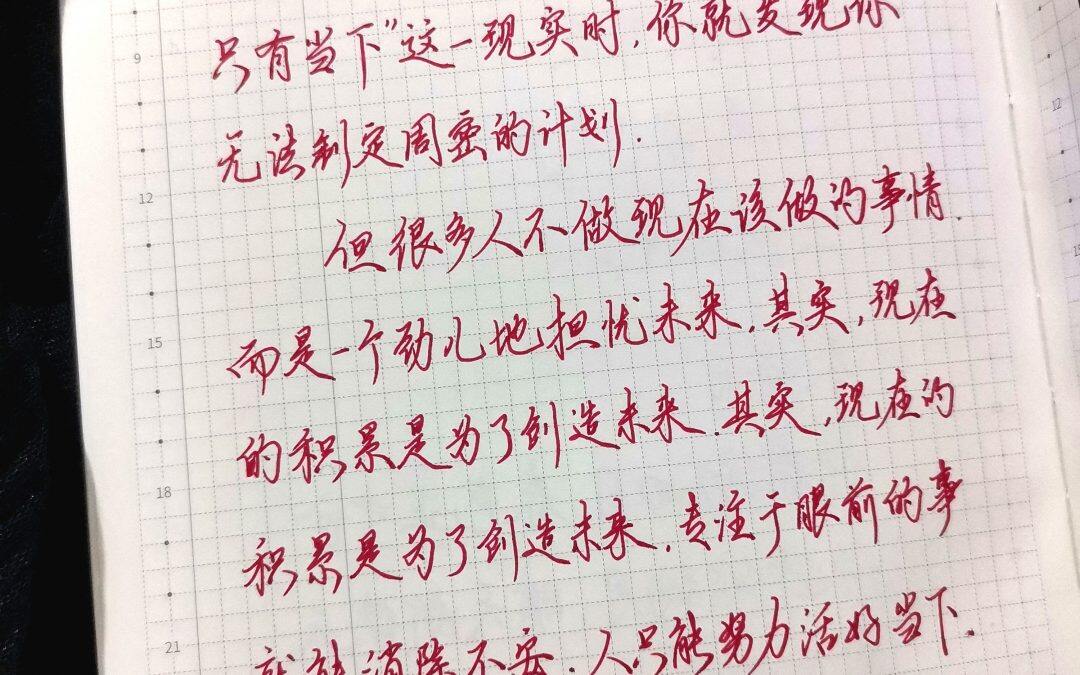 9
只有当下"这一现实时，你就发现你
无法制定周密的计划.
12
但很多人不做现在该做的事情.
而是一个劲儿地担忧未来.其实,现在
15
的积累是为了创造未来.其实,现在的
18
积累是为了创造未来.专注于眼前的事
就能消除不安.人只能努力活好当下.
21
12